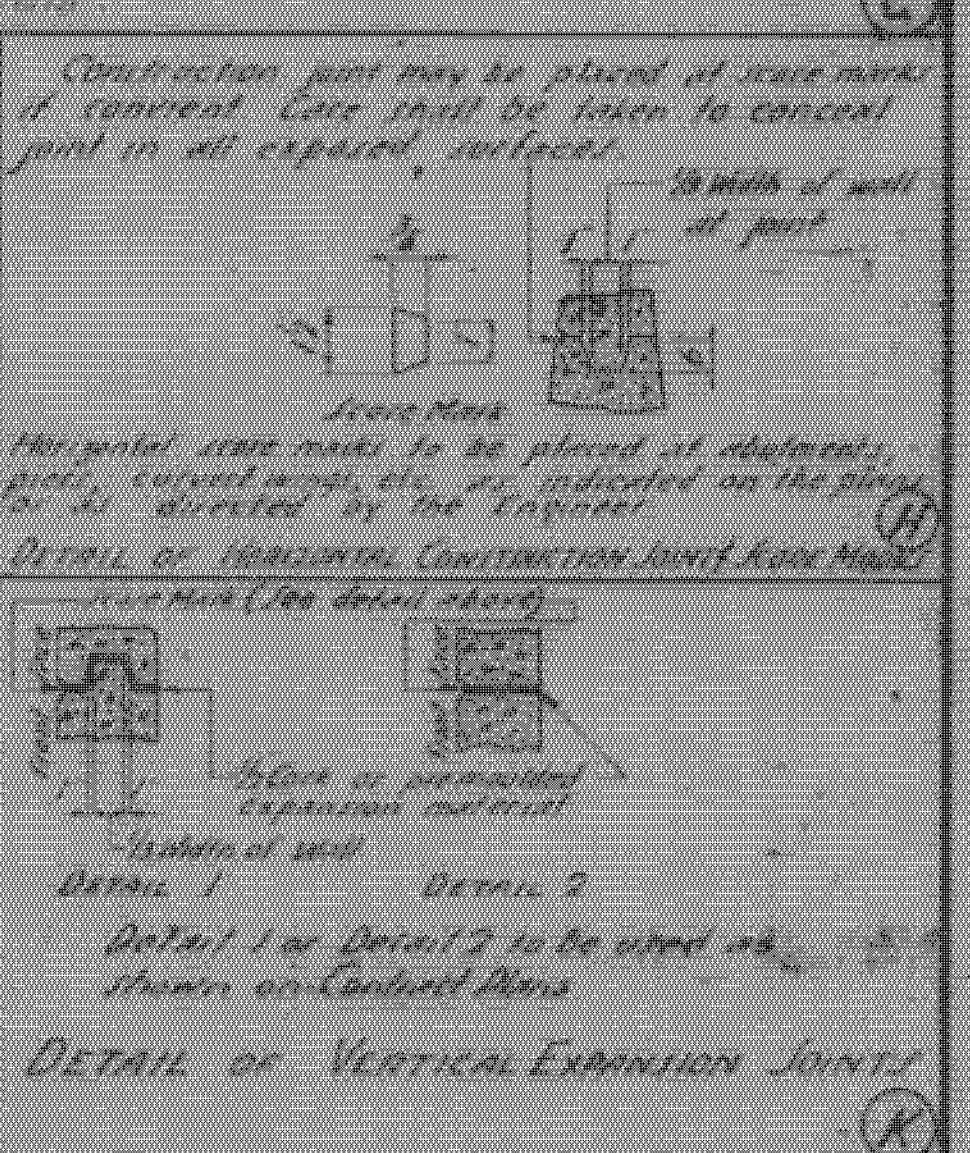 Construction joint may be placed at score marks
if convenient. Care shall be taken to conceal
joint in all exposed surfaces.
width of wall
at joint
Score Mark
Horizontal score marks to be placed at abutments,
piers, curtain walls, etc. as indicated on the plans
or as directed by the Engineer
H
DETAIL OF HORIZONTAL CONSTRUCTION JOINT SCORE MARK
Score Mark (See detail above)
Cork or premoulded
expansion material
width of wall
DETAIL 1
DETAIL 2
Detail 1 or Detail 2 to be used as
shown on Contract Plans
DETAIL OF VERTICAL EXPANSION JOINTS
K